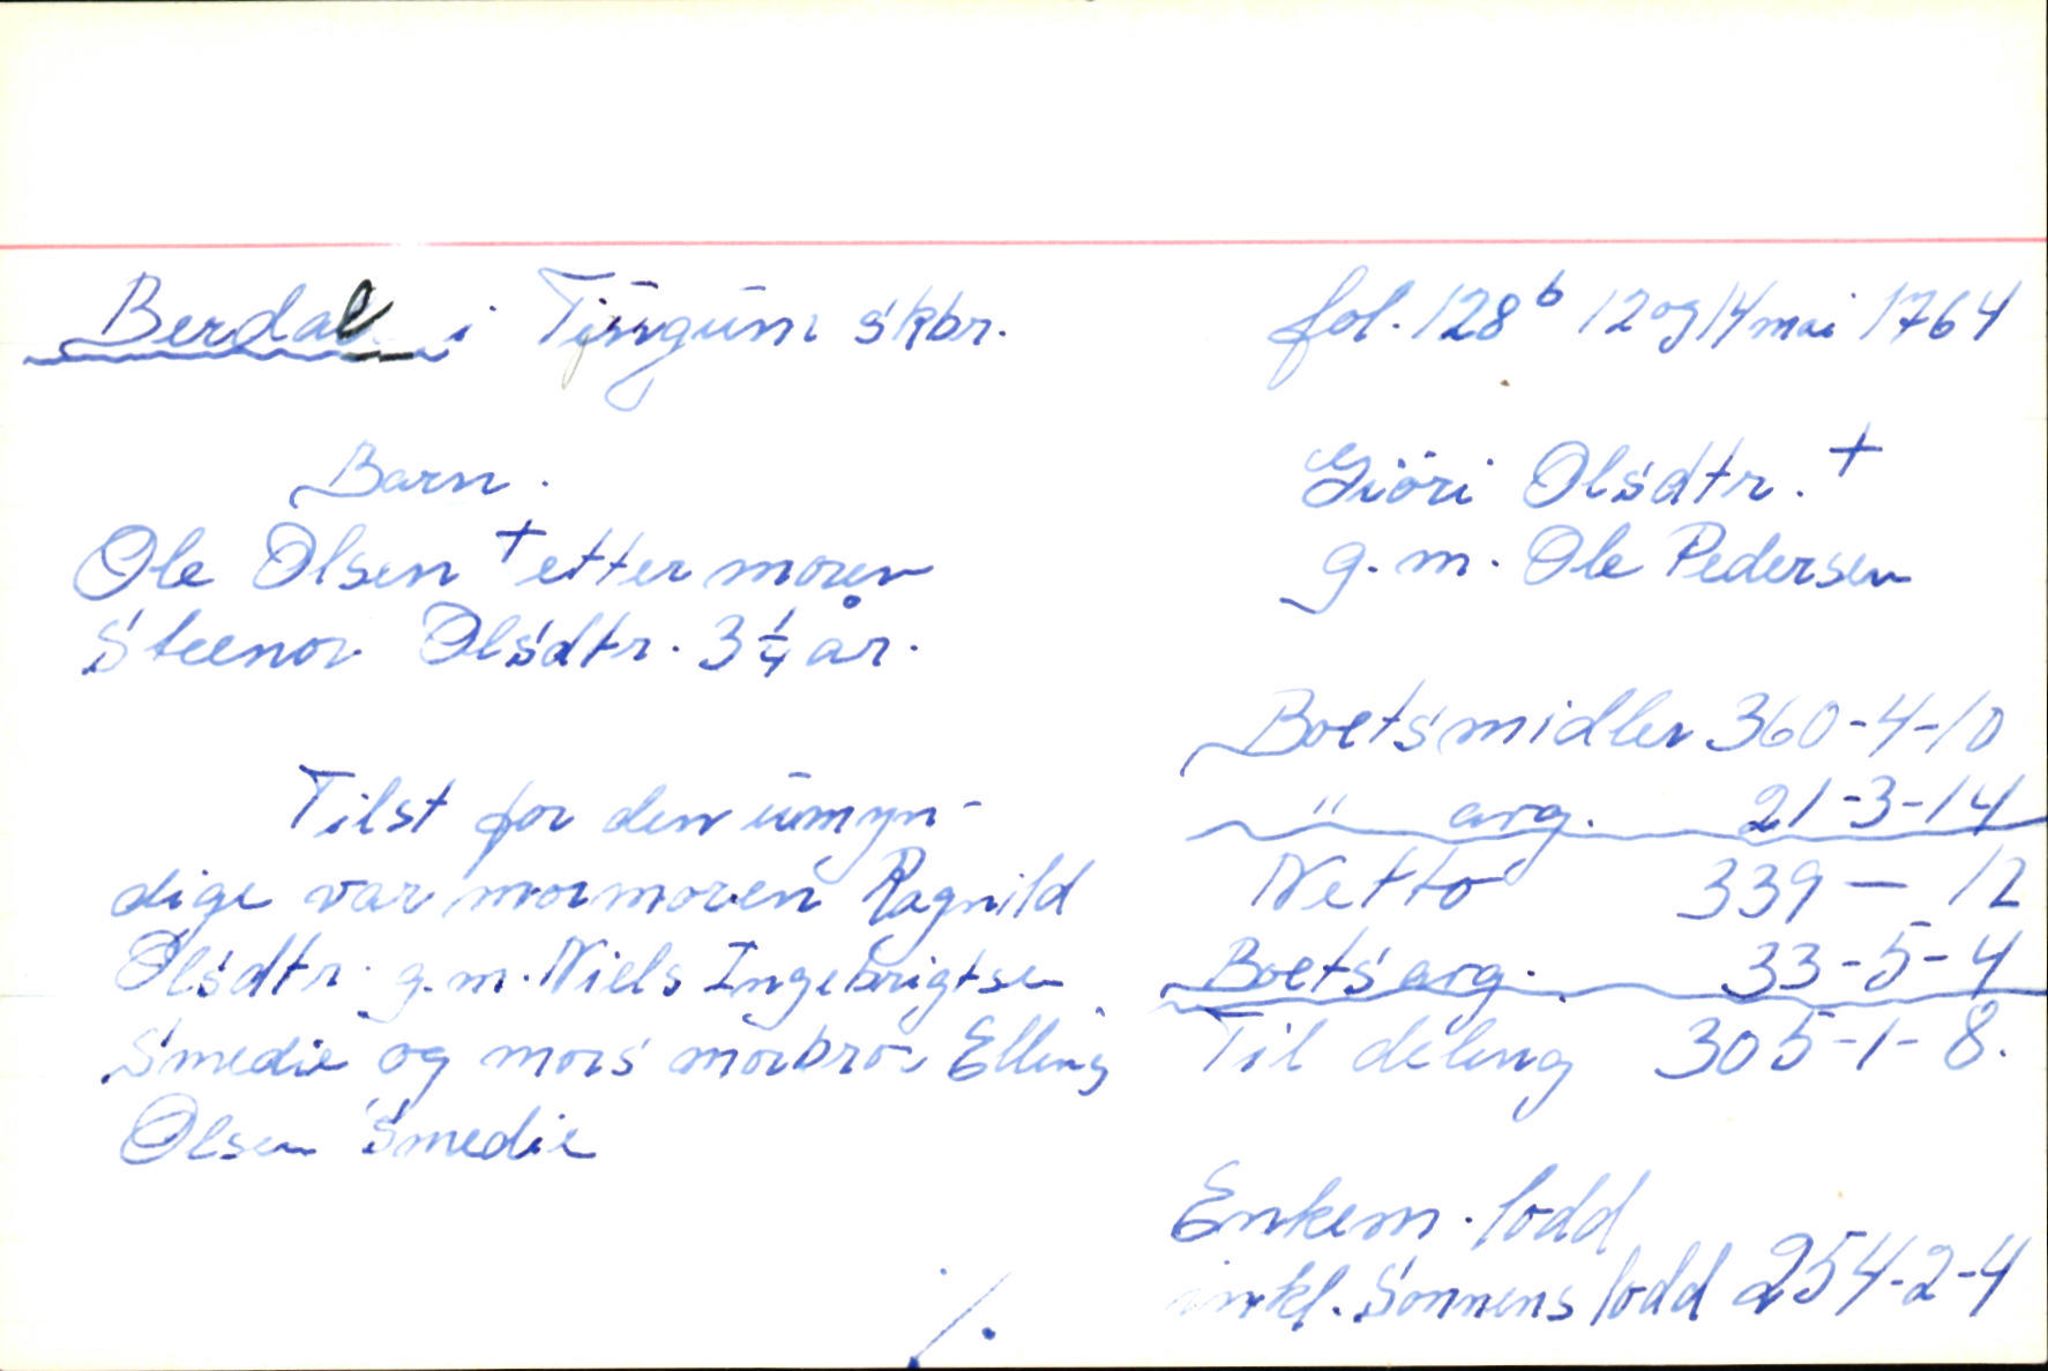 Berdal i Tjugum skbr.
fol. 128ᵇ 12 og 14 mai 1764
Barn.
Ole Olsen + etter moren
Steenor Olsdtr. 3 1/4 år.
Tilst for den umyn-
dige var mormoren Ragnild
Olsdtr. g.m. Niels Ingebrigtsen
Smedie og mors morbror Elling
Olsen Smedie
Giöri Olsdtr. +
g. m. Ole Pedersen
Boetsmidler 360-4-10
" arg. 21-3-14
Netto 339 — 12
Boets arg. 33-5-4
Til deling 305-1-8.
Enkem. lodd
inkl. Sønnens lodd 254-2-4
./.